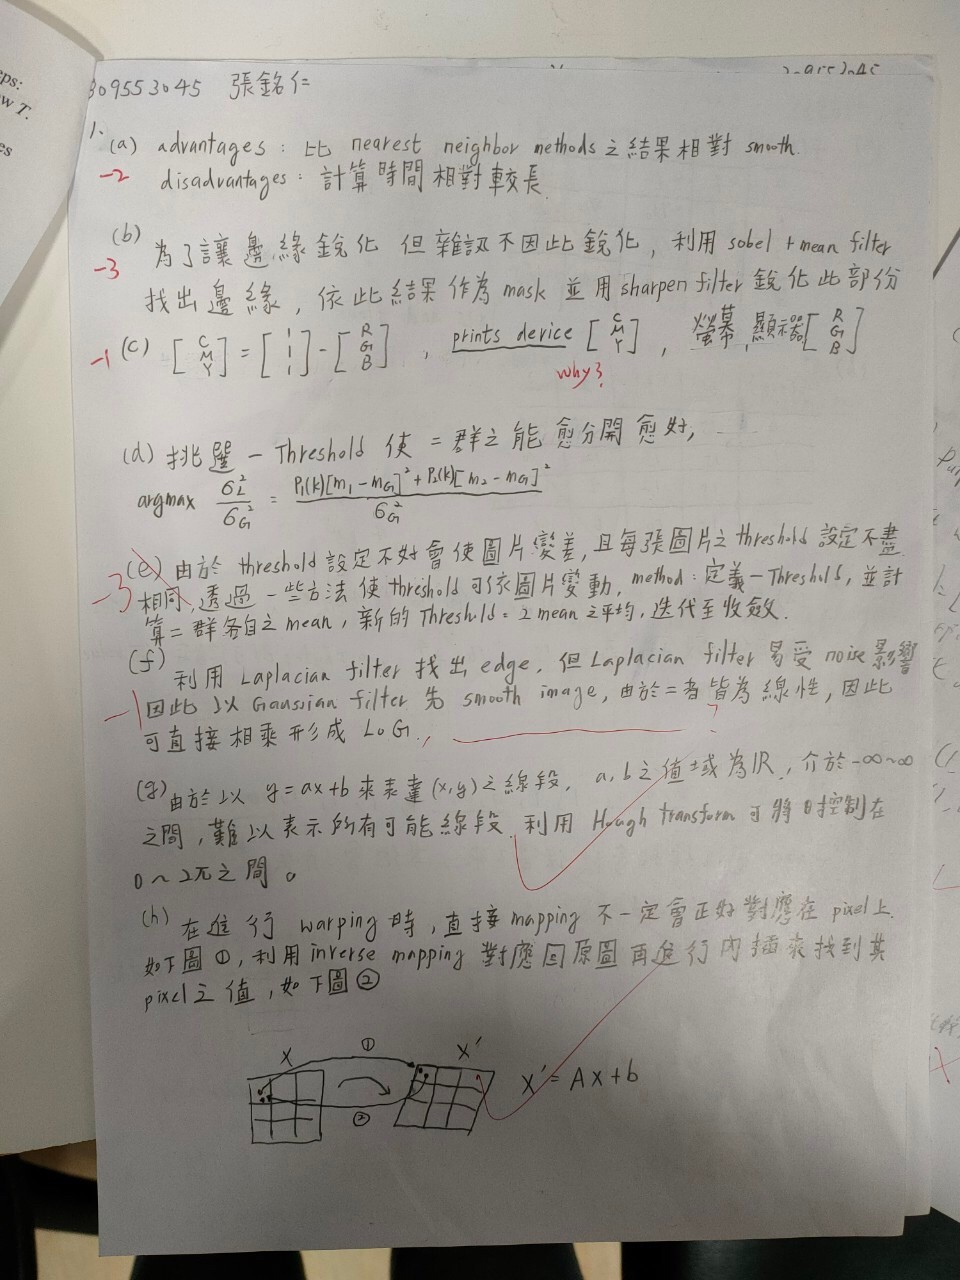 309553045 張銘仁
1.
(a) advantages : 比 nearest neighbor methods 之結果相對 smooth.
-2 disadvantages : 計算時間相對較長.
(b) 為了讓邊緣銳化 但雜訊不因此銳化, 利用 sobel + mean filter
-3 找出邊緣, 依此結果作為 mask 並用 sharpen filter 銳化此部份
-1 (c) [C M Y] = [1 1 1] - [R G B] , prints device [C M Y] , 螢幕, 顯示器 [R G B]
why?
(d) 挑選一 Threshold 使二群之能愈分開愈好,
argmax σL²/σG² = P1(k)[m1 - mG]² + P2(k)[m2 - mG]² / σG²
(e) 由於 threshold 設定不好會使圖片變差, 且每張圖片之 threshold 設定不盡
-3 相同, 透過一些方法使 threshold 可依圖片變動, method : 定義一 Threshold, 並計
算二群各自之 mean, 新的 Threshold = 2 mean 之平均, 迭代至收斂.
(f) 利用 Laplacian filter 找出 edge, 但 Laplacian filter 易受 noise 影響
-1 因此以 Gaussian filter 先 smooth image, 由於二者皆為線性, 因此
可直接相乘形成 LoG.
?
(g) 由於以 y = ax+b 來表達 (x,y) 之線段, a, b 之值域為 IR, 介於 -∞~∞
之間, 難以表示所有可能線段, 利用 Hough transform 可將 θ 控制在
0 ~ 2π 之間。
(h) 在進行 warping 時, 直接 mapping 不一定會正好對應在 pixel 上,
如下圖 ①, 利用 inverse mapping 對應回原圖再進行內插來找到其
pixel 之值, 如下圖 ②
X ① X'
②
X' = AX + b